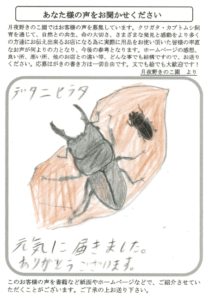 あなた様の声をお聞かせください
月夜野きのこ園ではお客様の声を募集しています。クワガタ・カブトムシ飼
育を通じて、自然との共生、命の大切さ、さまざまな発見と感動をより多く
の方達にお伝え出来るお店になる為に実際に用品をお使い頂いた皆様の率直
なお声が何よりの力となり、今後の参考となります。ホームページの感想、
良い所、悪い所、他のお店との違い等、どんな事でも結構ですので、お送り
ください。応募はがきの書き方は一切自由です。文でも絵でも大歓迎です!
月夜野きのこ園 より
デタニヒラタ
元気に届きました。
ありがとうございます。
このお客様の声を書籍など紙面やホームページなどで、ご紹介させていた
だくことがございます。ご了承の上お送り下さい。